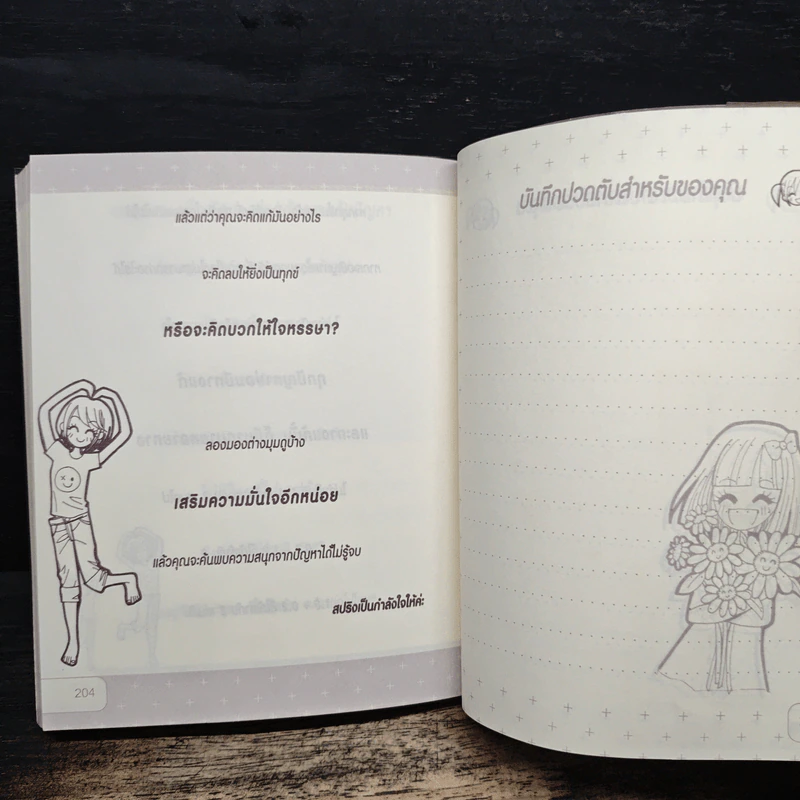 แล้วแต่ว่าคุณจะคิดแก้มันอย่างไร
จะคิดลบให้ยิ่งเป็นทุกข์
หรือจะคิดบวกให้ใจหรรษา?
ลองมองต่างมุมดูบ้าง
เสริมความมั่นใจอีกหน่อย
แล้วคุณจะค้นพบความสนุกจากปัญหาได้ไม่รู้จบ
สปริงเป็นกำลังใจให้ค่ะ
204
บันทึกปวดตับสำหรับของคุณ